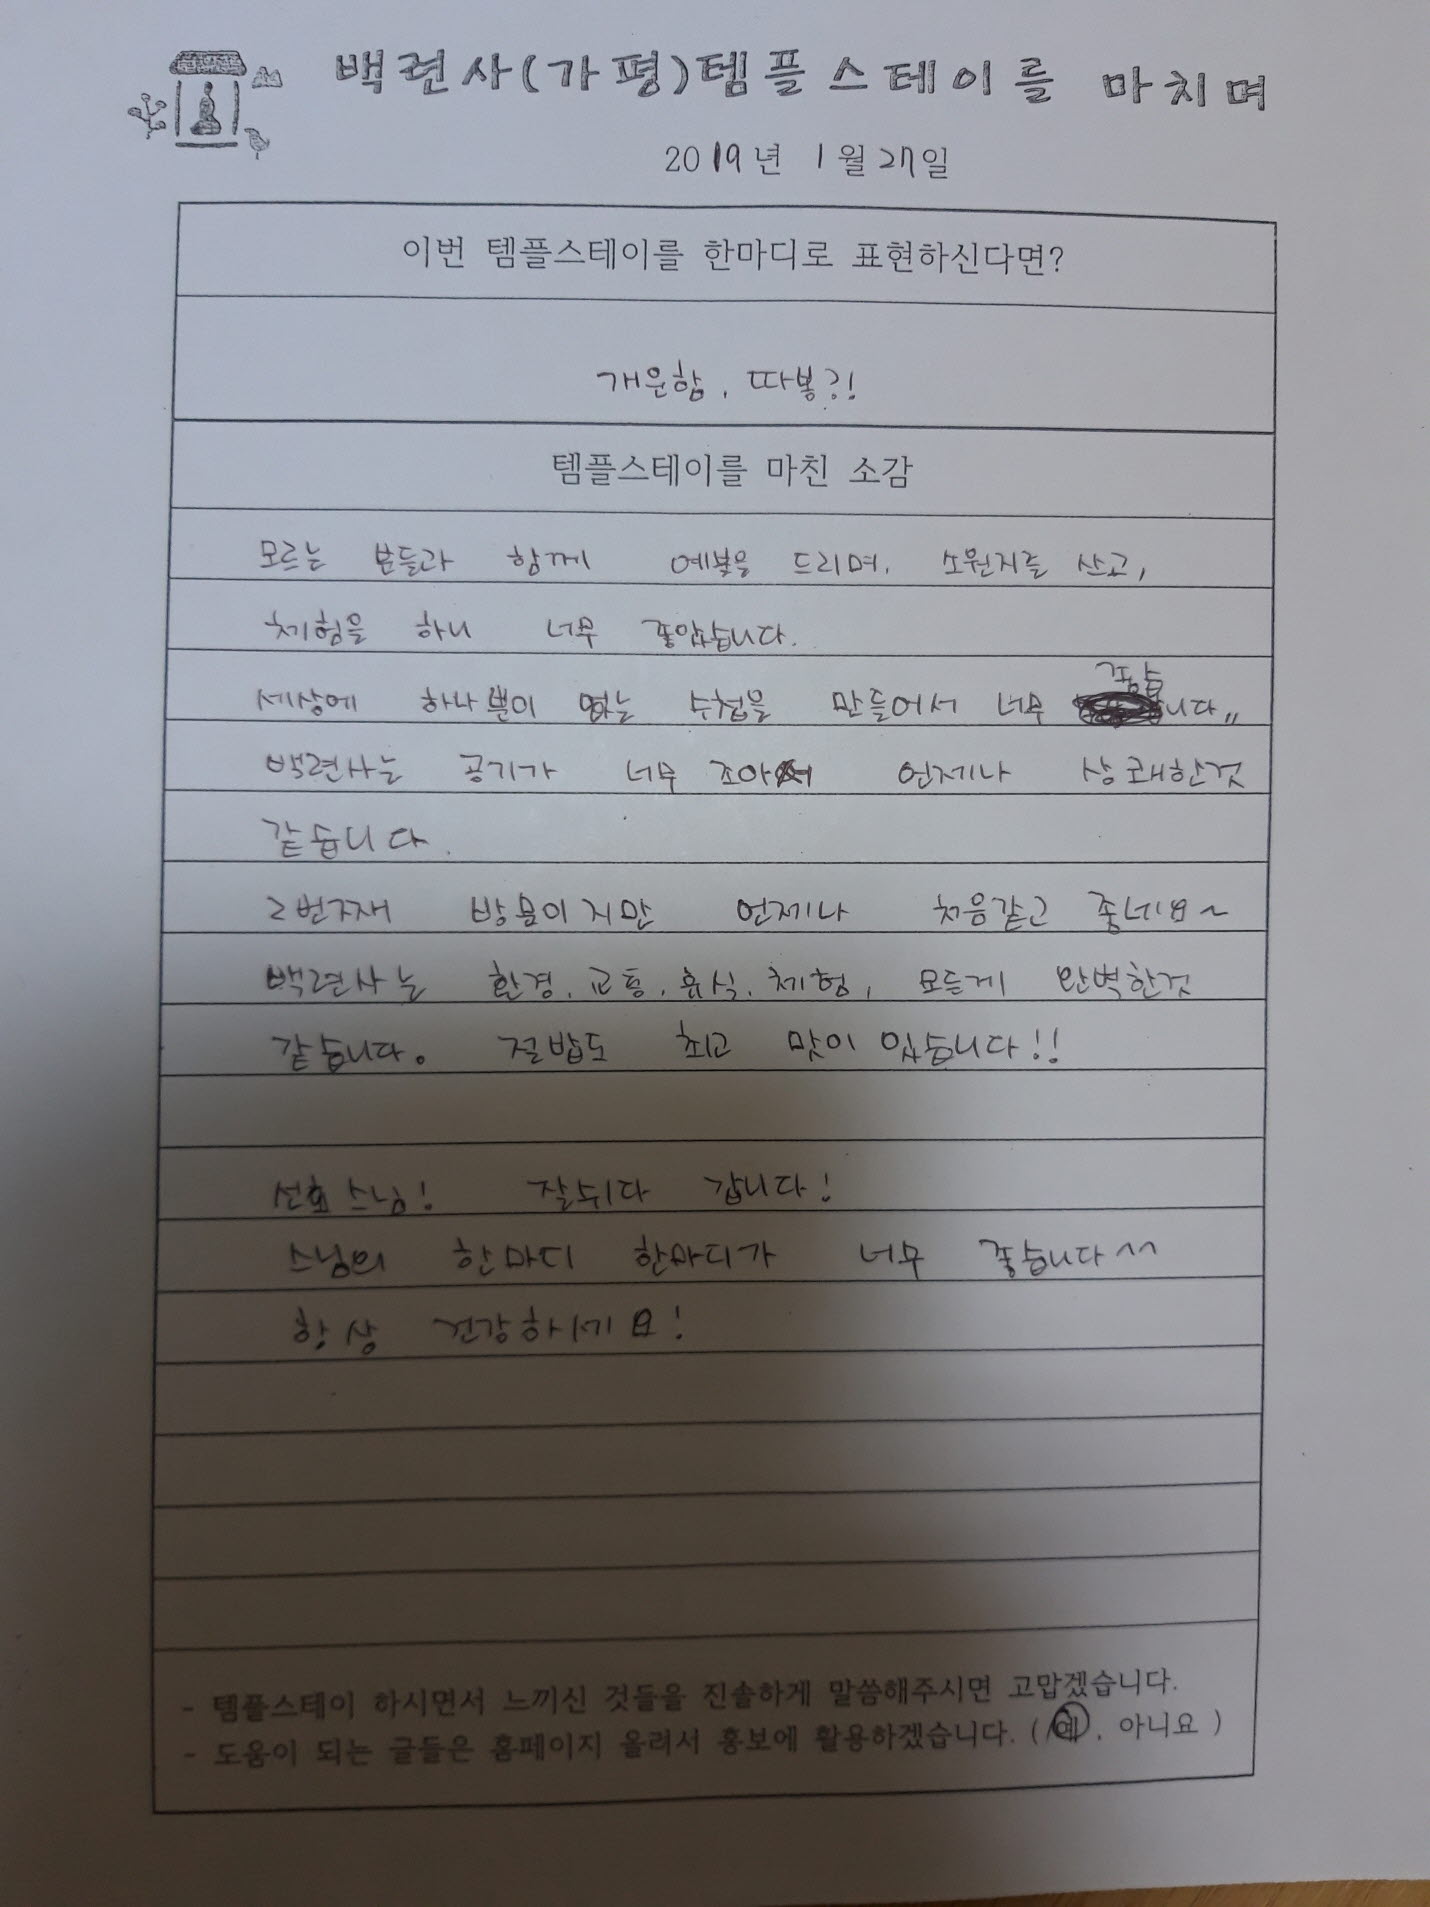 백련사(가평)템플스테이를 마치며
2019년 1월 27일
이번 템플스테이를 한마디로 표현하신다면?
개운함, 따봉?!
템플스테이를 마친 소감
모르는 분들과 함께 예불을 드리며, 소원지를 쓰고,
체험을 하니 너무 좋았습니다.
세상에 하나뿐이 없는 수첩을 만들어서 너무 좋습니다,,
백련사는 공기가 너무 조아서 언제나 상쾌한것
같습니다.
2번재 방문이지만 언제나 처음같고 좋네요~
백련사는 환경, 교통, 휴식, 체험, 모든게 완벽한것
같습니다. 절밥도 최고 맛이 있습니다!!
스님! 잘쉬다 갑니다!
스님의 한마디 한마디가 너무 좋습니다^^
항상 건강하세요!
- 템플스테이 하시면서 느끼신 것들을 진솔하게 말씀해주시면 고맙겠습니다.
- 도움이 되는 글들은 홈페이지 올려서 홍보에 활용하겠습니다. ( 예, 아니요 )